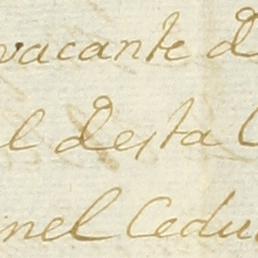 vacante d
l desta C
nel Cedu